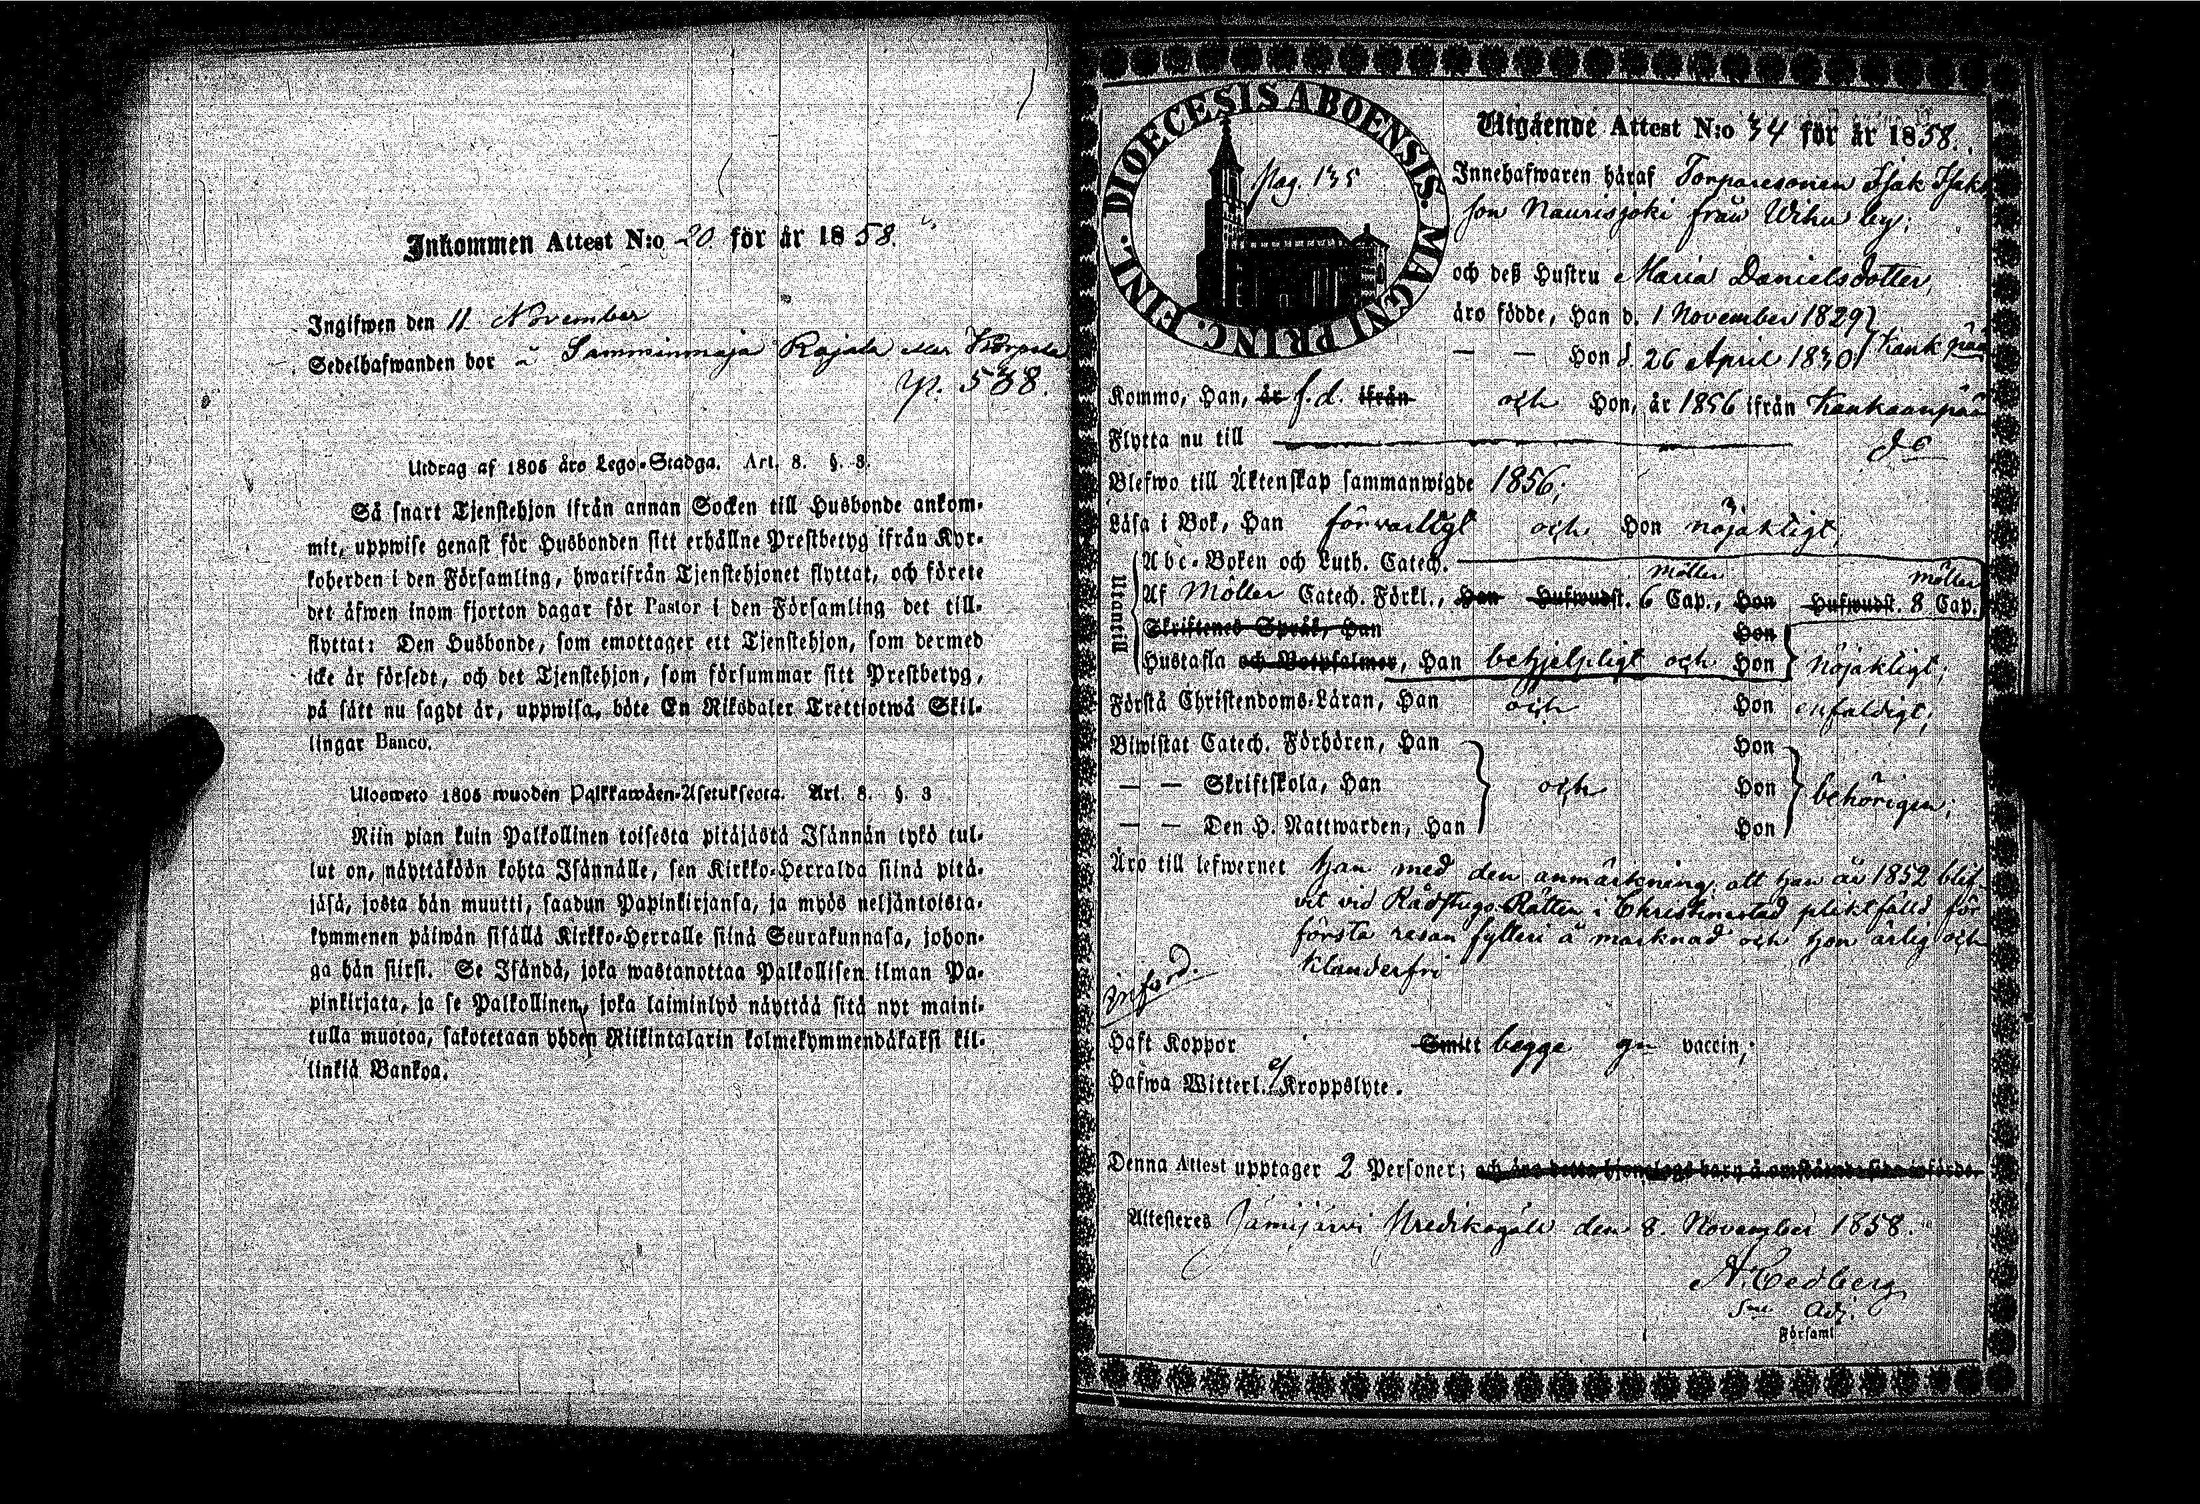 Inkommen Attest N:o 20 för år 1858.
Ingifwen den 11 November
Sedelhafwanden bor å Samminmaja Rajala eller Korpela
p. 538.
Utdrag af 1805 års Lego-Stadga. Art. 8. §. 3.
Så snart Tjenstehjon ifrån annan Socken till Husbonde ankom-
mit, uppwise genast för Husbonden sitt erhållne Prestbetyg ifrån Kyr-
koherden i den Församling, hwarifrån Tjenstehjonet flyttat, och förete
det äfwen inom fjorton dagar för Pastor i den Församling det till-
flyttat: Den Husbonde, som emottager ett Tjenstehjon, som dermed
icke är försedt, och det Tjenstehjon, som försummar sitt Prestbetyg,
på sätt nu sagdt är, uppwisa, böte En Riksdaler Trettiotwå Skil-
lingar Banco.
Ulosweto 1805 wuoden Palkkawäen-Asetuksesta. Art. 8. §. 3
Niin pian kuin Palkollinen toisesta pitäjästä Isännän tykö tul-
lut on, näyttäköön kohta Isännälle, sen Kirkko-Herralda siinä pitä-
jäsä, josta hän muutti, saadun Papinkirjansa, ja myös neljäntoista-
kymmenen päiwän sisällä Kirkko-Herralle siinä Seurakunnasa, johon-
ga hän siirsi. Se Isändä, joka wastanottaa Palkollisen ilman Pa-
pinkirjata, ja se Palkollinen, joka laiminlyö näyttää sitä nyt maini-
tulla muotoa, sakotetaan yhden Riikintalarin kolmekymmendäkaksi kil-
linkiä Bankoa.
DIOECESIS ABOENSIS. MAGNI PRINC. FINL.
Pag. 135
Utgående Attest N:o 34 för år 1858.
Innehafwaren häraf Torparesonen Isak Isaks
son Naurisjoki från Wihu by;
och deß Hustru Maria Danielsdotter,
äro födde, Han d. 1 November 1829
— — Hon d. 26 April 1830 Kank pää
Kommo, Han, är f.d. ifrån och Hon, år 1856 ifrån Kankaanpää
Flytta nu till do
Blefwo till Äktenskap sammanwigde 1856;
Läsa i Bok, Han försvarligt och Hon nöjaktigt,
Utantill
Abc-Boken och Luth. Catech.
Af Möller Catech. Förkl., Han Hufwudst. möller 6 Cap., Hon Hufwudst. möller 8 Cap.
Skriftenes Språk, Han Hon
Hustafla och Botpsalmer, Han behjelpligt och Hon nöjaktigt;
Förstå Christendoms-Läran, Han och Hon enfaldigt;
Biwistat Catech. Förhören, Han Hon
— — Skriftskola, Han och Hon behörigen;
— — Den H. Nattwarden, Han Hon
Äro till lefwernet han med den anmärkning, att han år 1852 blif-
vit vid Rådstugo Rätten i Christinestad pliktfälld för
första resan fylleri å marknad och hon ärlig och
klanderfri
införd.
Haft Koppor Smitt begge gm vaccin;
Hafwa Witterl. ej Kroppslyte.
Denna Attest upptager 2 Personer; och äro detta hjonelags barn å omstående sida införde.
Attesteras Jämijärvi Predikogäll den 8. November 1858.
A. Cedberg
Sne Adj.
Församl